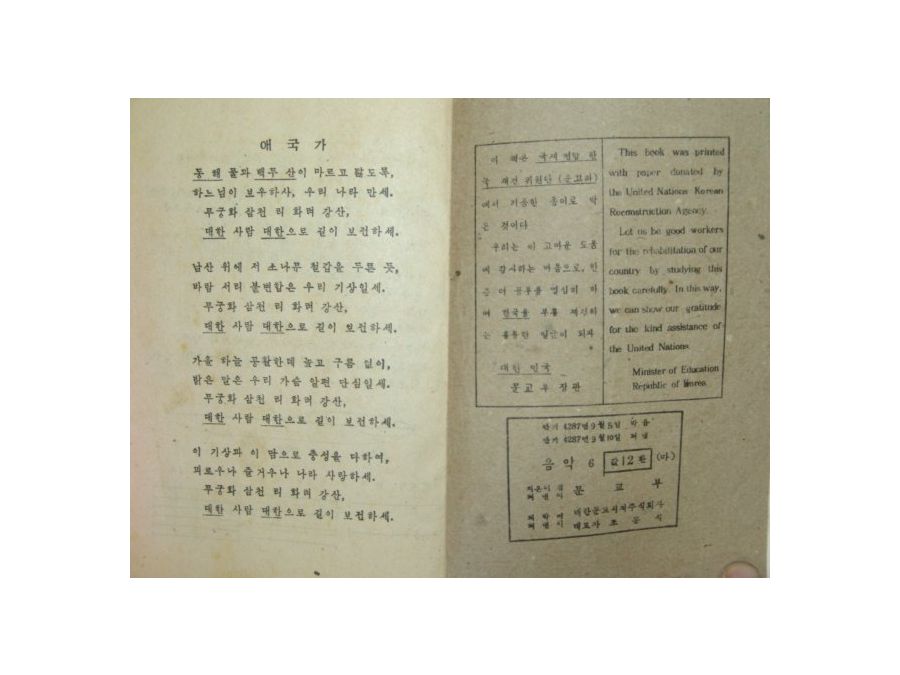 애 국 가
동 해 물과 백두 산이 마르고 닳도록,
하느님이 보우하사, 우리 나라 만세.
무궁화 삼천 리 화려 강산,
대한 사람 대한으로 길이 보전하세.
남산 위에 저 소나무 철갑을 두른 듯,
바람 서리 불변함은 우리 기상일세.
무궁화 삼천 리 화려 강산,
대한 사람 대한으로 길이 보전하세.
가을 하늘 공활한데 높고 구름 없이,
밝은 달은 우리 가슴 일편 단심일세.
무궁화 삼천 리 화려 강산,
대한 사람 대한으로 길이 보전하세.
이 기상과 이 맘으로 충성을 다하여,
괴로우나 즐거우나 나라 사랑하세.
무궁화 삼천 리 화려 강산,
대한 사람 대한으로 길이 보전하세.
이 책은 국제 연합 한
국 재건 위원단 (운끄라)
에서 기증한 종이로 박
은 것이다
우리는 이 고마운 도움
에 감사하는 마음으로, 한
층 더 공부를 열심히 하
여 한국을 부흥 재건하
는 훌륭한 일군이 되자
대한 민국
문교부 장관
This book was printed
with paper donated by
the United Nations Korean
Reconstruction Agency.
Let us be good workers
for the rehabilitation of our
country by studying this
book carefully. In this way,
we can show our gratitude
for the kind assistance of
the United Nations.
Minister of Education
Republic of Korea
단기 4287년 9월 5일 박음
단기 4287년 9월 10일 펴냄
음악 6 값 12 환 (마)
문 교 부
대한문교서적주식회사
대표자 조